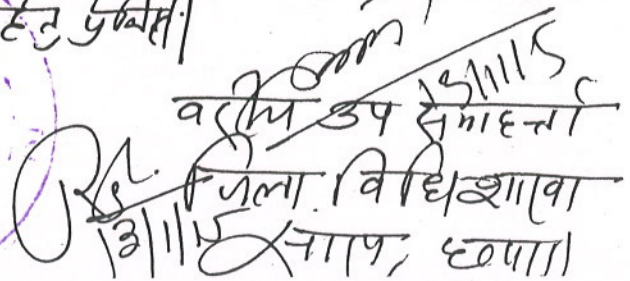 हेतु प्रेषित।
13/11/15
वरीय उप समाहर्त्ता
जिला विधि शाखा
13/11/15 सारण, छपरा।